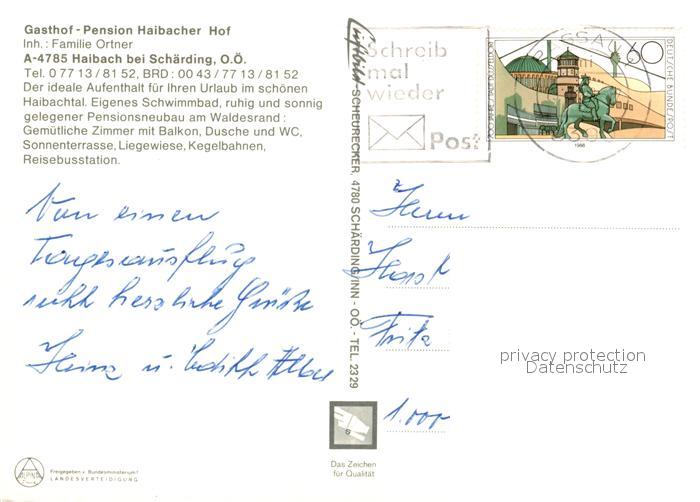 Gasthof - Pension Haibacher Hof
Inh.: Familie Ortner
A-4785 Haibach bei Schärding, O.Ö.
Tel. 0 77 13 / 81 52, BRD : 00 43 / 77 13 / 81 52
Der ideale Aufenthalt für Ihren Urlaub im schönen
Haibachtal. Eigenes Schwimmbad, ruhig und sonnig
gelegener Pensionsneubau am Waldesrand :
Gemütliche Zimmer mit Balkon, Dusche und WC,
Sonnenterrasse, Liegewiese, Kegelbahnen,
Reisebusstation.
Von einem
Tagesausflug
herzliche Grüße
Heinz u. Edith
Freigegeben v. Bundesministerium f.
LANDESVERTEIDIGUNG
Luftbild-SCHEURECKER, 4780 SCHÄRDING/INN - OÖ. - TEL. 23 29
Das Zeichen
für Qualität
Schreib
mal
wieder
Post
60
DEUTSCHE BUNDESPOST
1988
Herrn
Horst
Fritz
1.000
privacy protection
Datenschutz